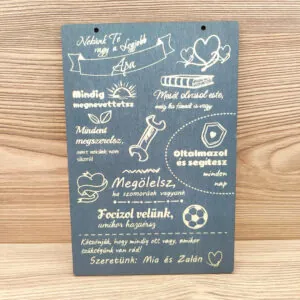 Nekünk Te
vagy a Legjobb
Apa
Mindig
megnevettetsz
Mesét olvasol este,
még ha fáradt is vagy
Mindent
megszerelsz,
Oltalmazol
és segítesz
minden
nap
Megölelsz,
ha szomorúak vagyunk
Focizol velünk,
amikor hazaérsz
Köszönjük, hogy mindig ott vagy, amikor
szükségünk van rád!
Szeretünk: Mia és Zalán